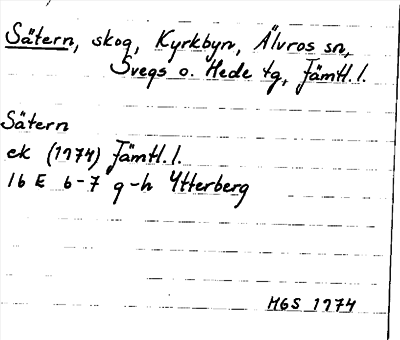 Sätern, skog, Kyrkbyn, Älvros sn,
Svegs o. Hede tg, Jämtl. l.
Sätern
ek (1974) Jämtl. l.
16 E 6-7 g-h Ytterberg
MGS 1974